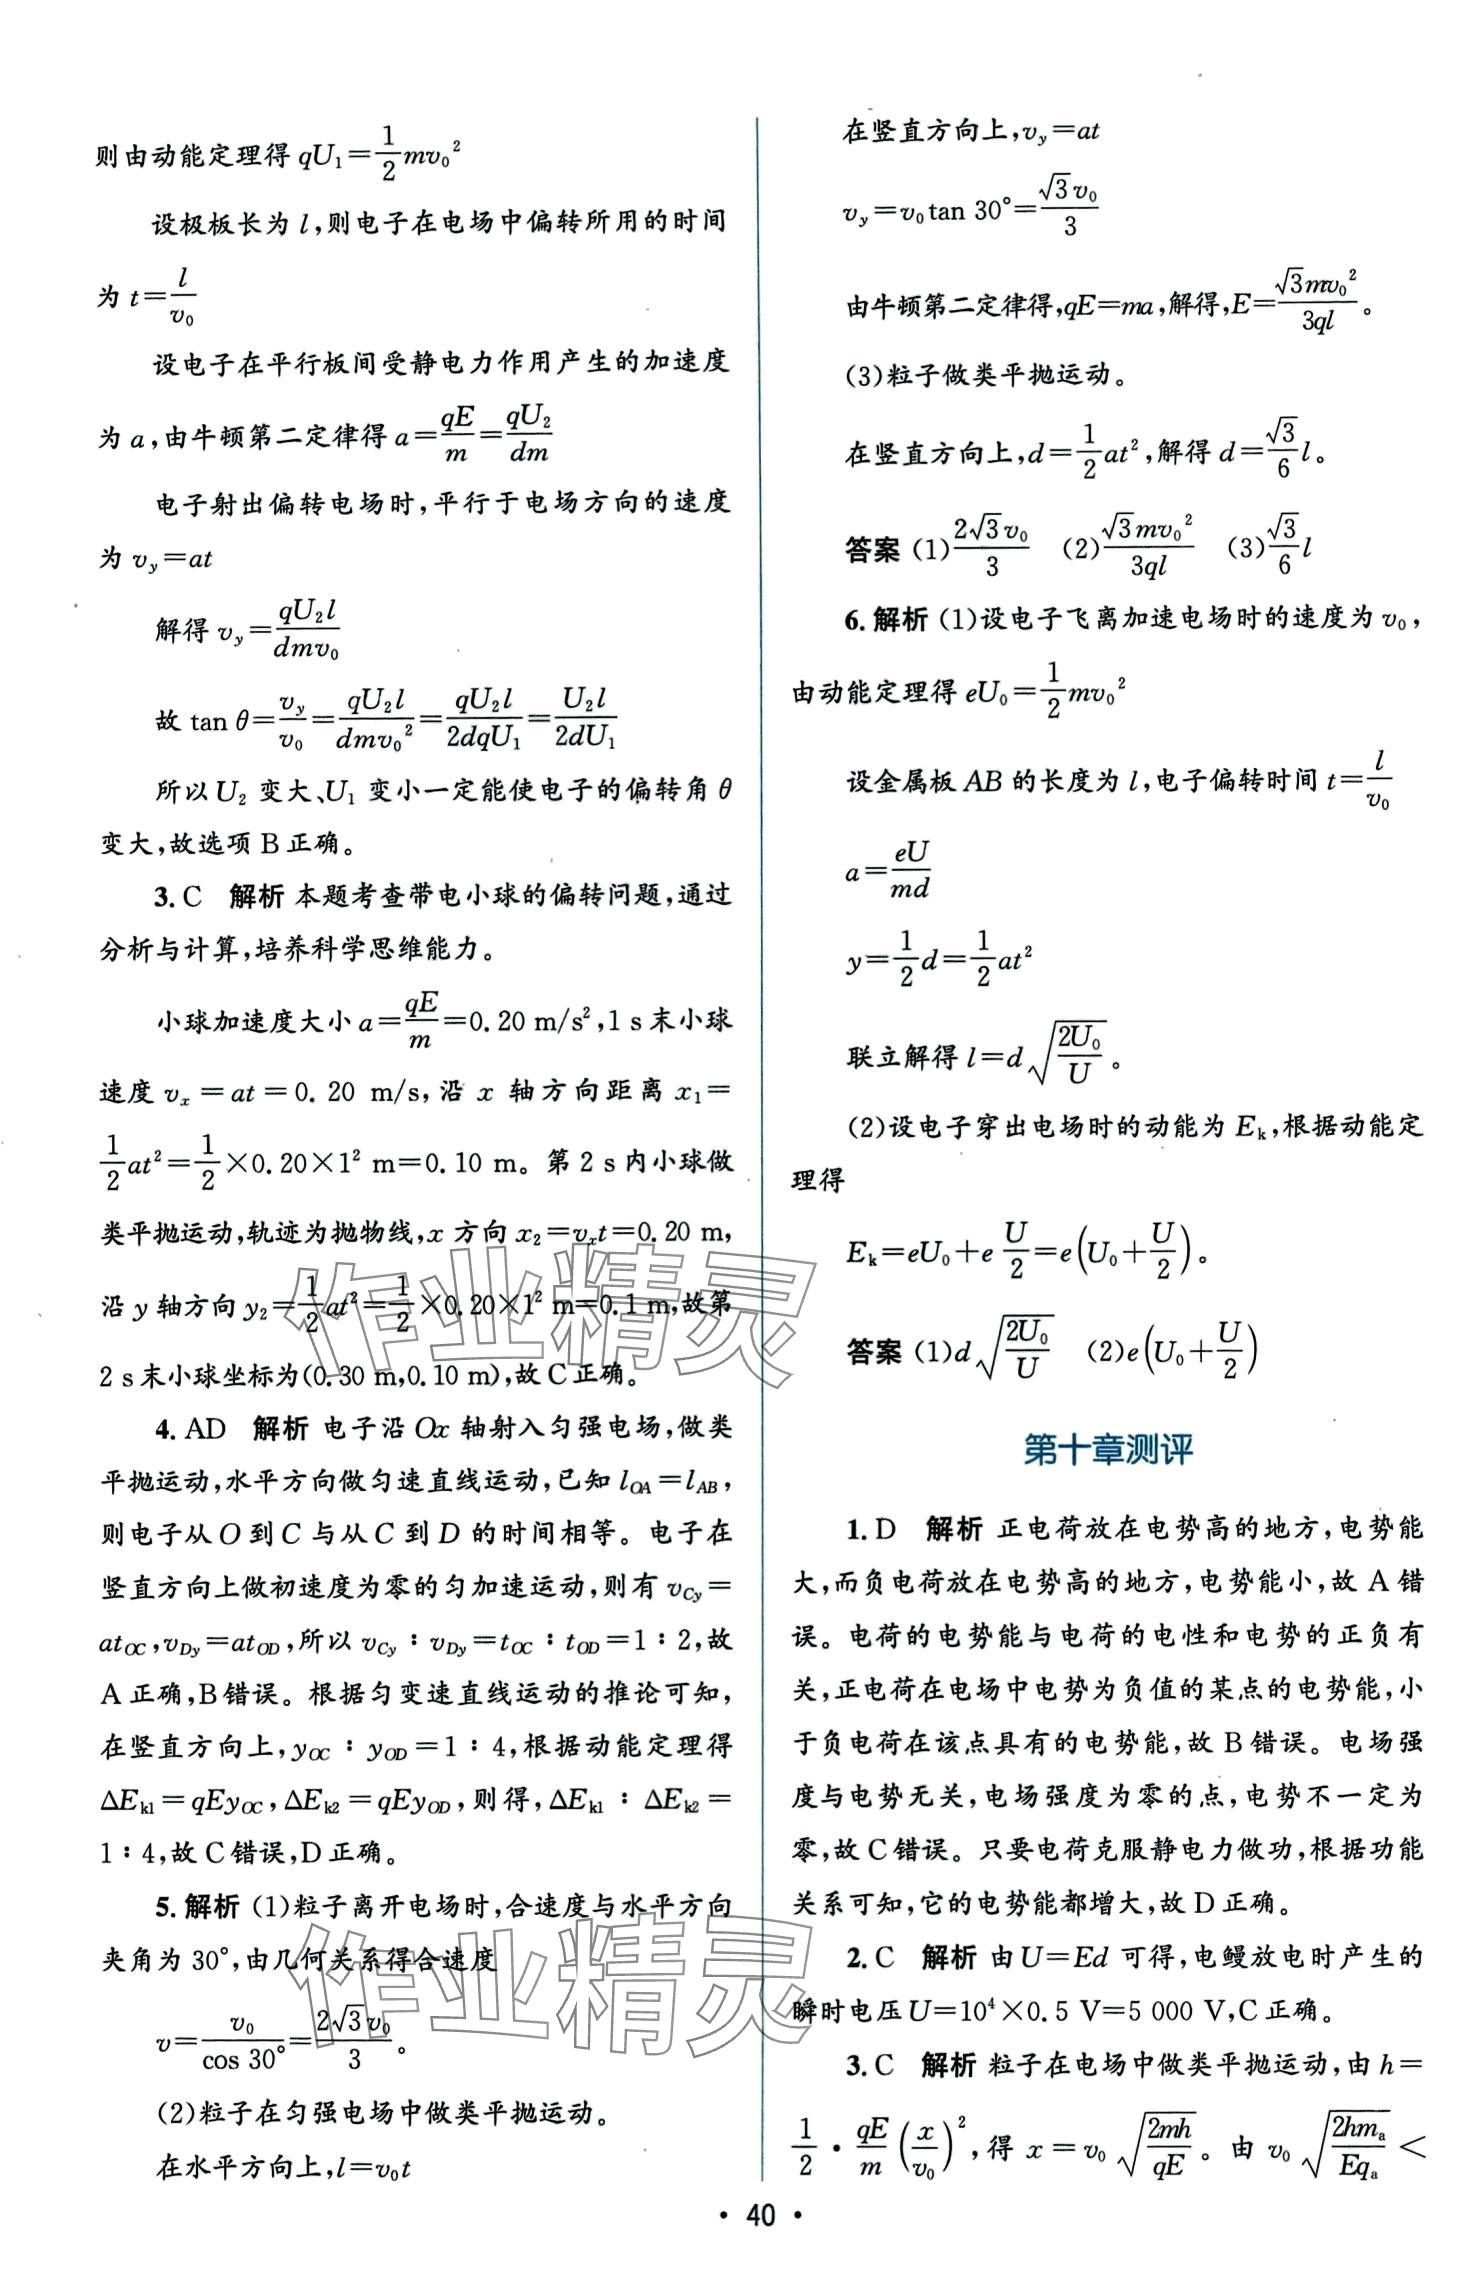 则由动能定理得 qU₁=\frac{1}{2}mv₀²
设极板长为 l,则电子在电场中偏转所用的时间
为 t=\frac{l}{v₀}
设电子在平行板间受静电力作用产生的加速度
为 a,由牛顿第二定律得 a=\frac{qE}{m}=\frac{qU₂}{dm}
电子射出偏转电场时,平行于电场方向的速度
为 v_y=at
解得 v_y=\frac{qU₂l}{dmv₀}
故 tan θ=\frac{v_y}{v₀}=\frac{qU₂l}{dmv₀²}=\frac{qU₂l}{2dqU₁}=\frac{U₂l}{2dU₁}
所以 U₂ 变大、U₁ 变小一定能使电子的偏转角 θ
变大,故选项 B 正确。
3. C 解析 本题考查带电小球的偏转问题,通过
分析与计算,培养科学思维能力。
小球加速度大小 a=\frac{qE}{m}=0.20 m/s²,1 s 末小球
速度 v_x=at=0.20 m/s,沿 x 轴方向距离 x₁=
\frac{1}{2}at²=\frac{1}{2}×0.20×1² m=0.10 m。第 2 s 内小球做
类平抛运动,轨迹为抛物线,x 方向 x₂=v_xt=0.20 m,
沿 y 轴方向 y₂=\frac{1}{2}at²=\frac{1}{2}×0.20×1² m=0.1 m,故第
2 s 末小球坐标为(0.30 m,0.10 m),故 C 正确。
4. AD 解析 电子沿 Ox 轴射入匀强电场,做类
平抛运动,水平方向做匀速直线运动,已知 l_{OA}=l_{AB},
则电子从 O 到 C 与从 C 到 D 的时间相等。电子在
竖直方向上做初速度为零的匀加速运动,则有 v_{Cy}=
at_{OC},v_{Dy}=at_{OD},所以 v_{Cy}∶v_{Dy}=t_{OC}∶t_{OD}=1∶2,故
A 正确,B 错误。根据匀变速直线运动的推论可知,
在竖直方向上,y_{OC}∶y_{OD}=1∶4,根据动能定理得
ΔE_{k1}=qEy_{OC},ΔE_{k2}=qEy_{OD},则得,ΔE_{k1}∶ΔE_{k2}=
1∶4,故 C 错误,D 正确。
5. 解析 (1)粒子离开电场时,合速度与水平方向
夹角为 30°,由几何关系得合速度
v=\frac{v₀}{cos 30°}=\frac{2\sqrt{3}v₀}{3}。
(2)粒子在匀强电场中做类平抛运动。
在水平方向上,l=v₀t
在竖直方向上,v_y=at
v_y=v₀tan 30°=\frac{\sqrt{3}v₀}{3}
由牛顿第二定律得,qE=ma,解得,E=\frac{\sqrt{3}mv₀²}{3ql}。
(3)粒子做类平抛运动。
在竖直方向上,d=\frac{1}{2}at²,解得 d=\frac{\sqrt{3}}{6}l。
答案 (1)\frac{2\sqrt{3}v₀}{3} (2)\frac{\sqrt{3}mv₀²}{3ql} (3)\frac{\sqrt{3}}{6}l
6. 解析 (1)设电子飞离加速电场时的速度为 v₀,
由动能定理得 eU₀=\frac{1}{2}mv₀²
设金属板 AB 的长度为 l,电子偏转时间 t=\frac{l}{v₀}
a=\frac{eU}{md}
y=\frac{1}{2}d=\frac{1}{2}at²
联立解得 l=d\sqrt{\frac{2U₀}{U}}。
(2)设电子穿出电场时的动能为 E_k,根据动能定
理得
E_k=eU₀+e\frac{U}{2}=e(U₀+\frac{U}{2})。
答案 (1)d\sqrt{\frac{2U₀}{U}} (2)e(U₀+\frac{U}{2})
第十章测评
1. D 解析 正电荷放在电势高的地方,电势能
大,而负电荷放在电势高的地方,电势能小,故 A 错
误。电荷的电势能与电荷的电性和电势的正负有
关,正电荷在电场中电势为负值的某点的电势能,小
于负电荷在该点具有的电势能,故 B 错误。电场强
度与电势无关,电场强度为零的点,电势不一定为
零,故 C 错误。只要电荷克服静电力做功,根据功能
关系可知,它的电势能都增大,故 D 正确。
2. C 解析 由 U=Ed 可得,电鳗放电时产生的
瞬时电压 U=10⁴×0.5 V=5 000 V,C 正确。
3. C 解析 粒子在电场中做类平抛运动,由 h=
\frac{1}{2}·\frac{qE}{m}(\frac{x}{v₀})²,得 x=v₀\sqrt{\frac{2mh}{qE}}。由 v₀\sqrt{\frac{2hm_a}{Eq_a}}<
作业精灵
作业精灵
· 40 ·